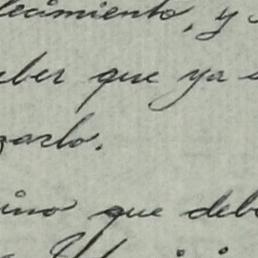 lecimiento, y
aber que ya s
zarlo.
ino que debe